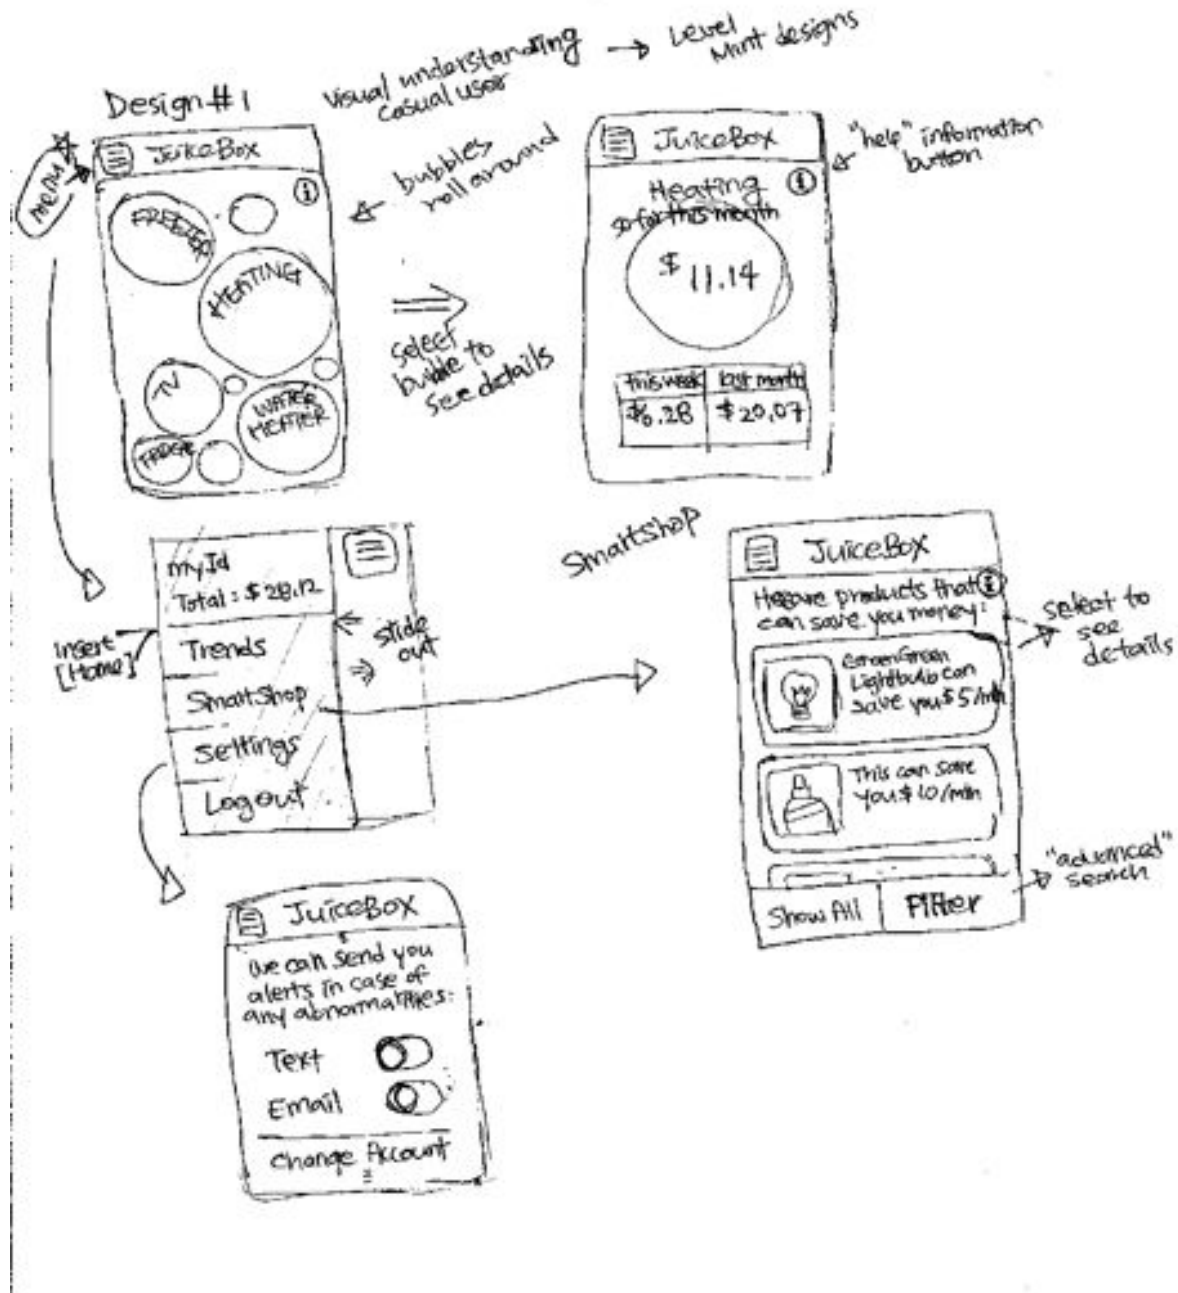 Design #1
Visual understanding
Casual user
→ Level
Mint designs
menu
JuiceBox
FREEZER
HEATING
TV
WATER
HEATER
FRIDGE
bubbles
roll around
select
bubble to
see details
JuiceBox
Heating
so far this month
$ 11.14
this week last month
$6.28 $20.07
"help" information
button
my Id
Total: $28.12
Trends
SmartShop
Settings
Logout
Insert
[Home]
slide
out
SmartShop
JuiceBox
products that
can save you money:
Green
Lightbulb can
save you $5/mth
This can save
you $10/mth
Show All Filter
select to
see
details
"advanced"
search
JuiceBox
We can send you
alerts in case of
any abnormalities:
Text
Email
Change Account